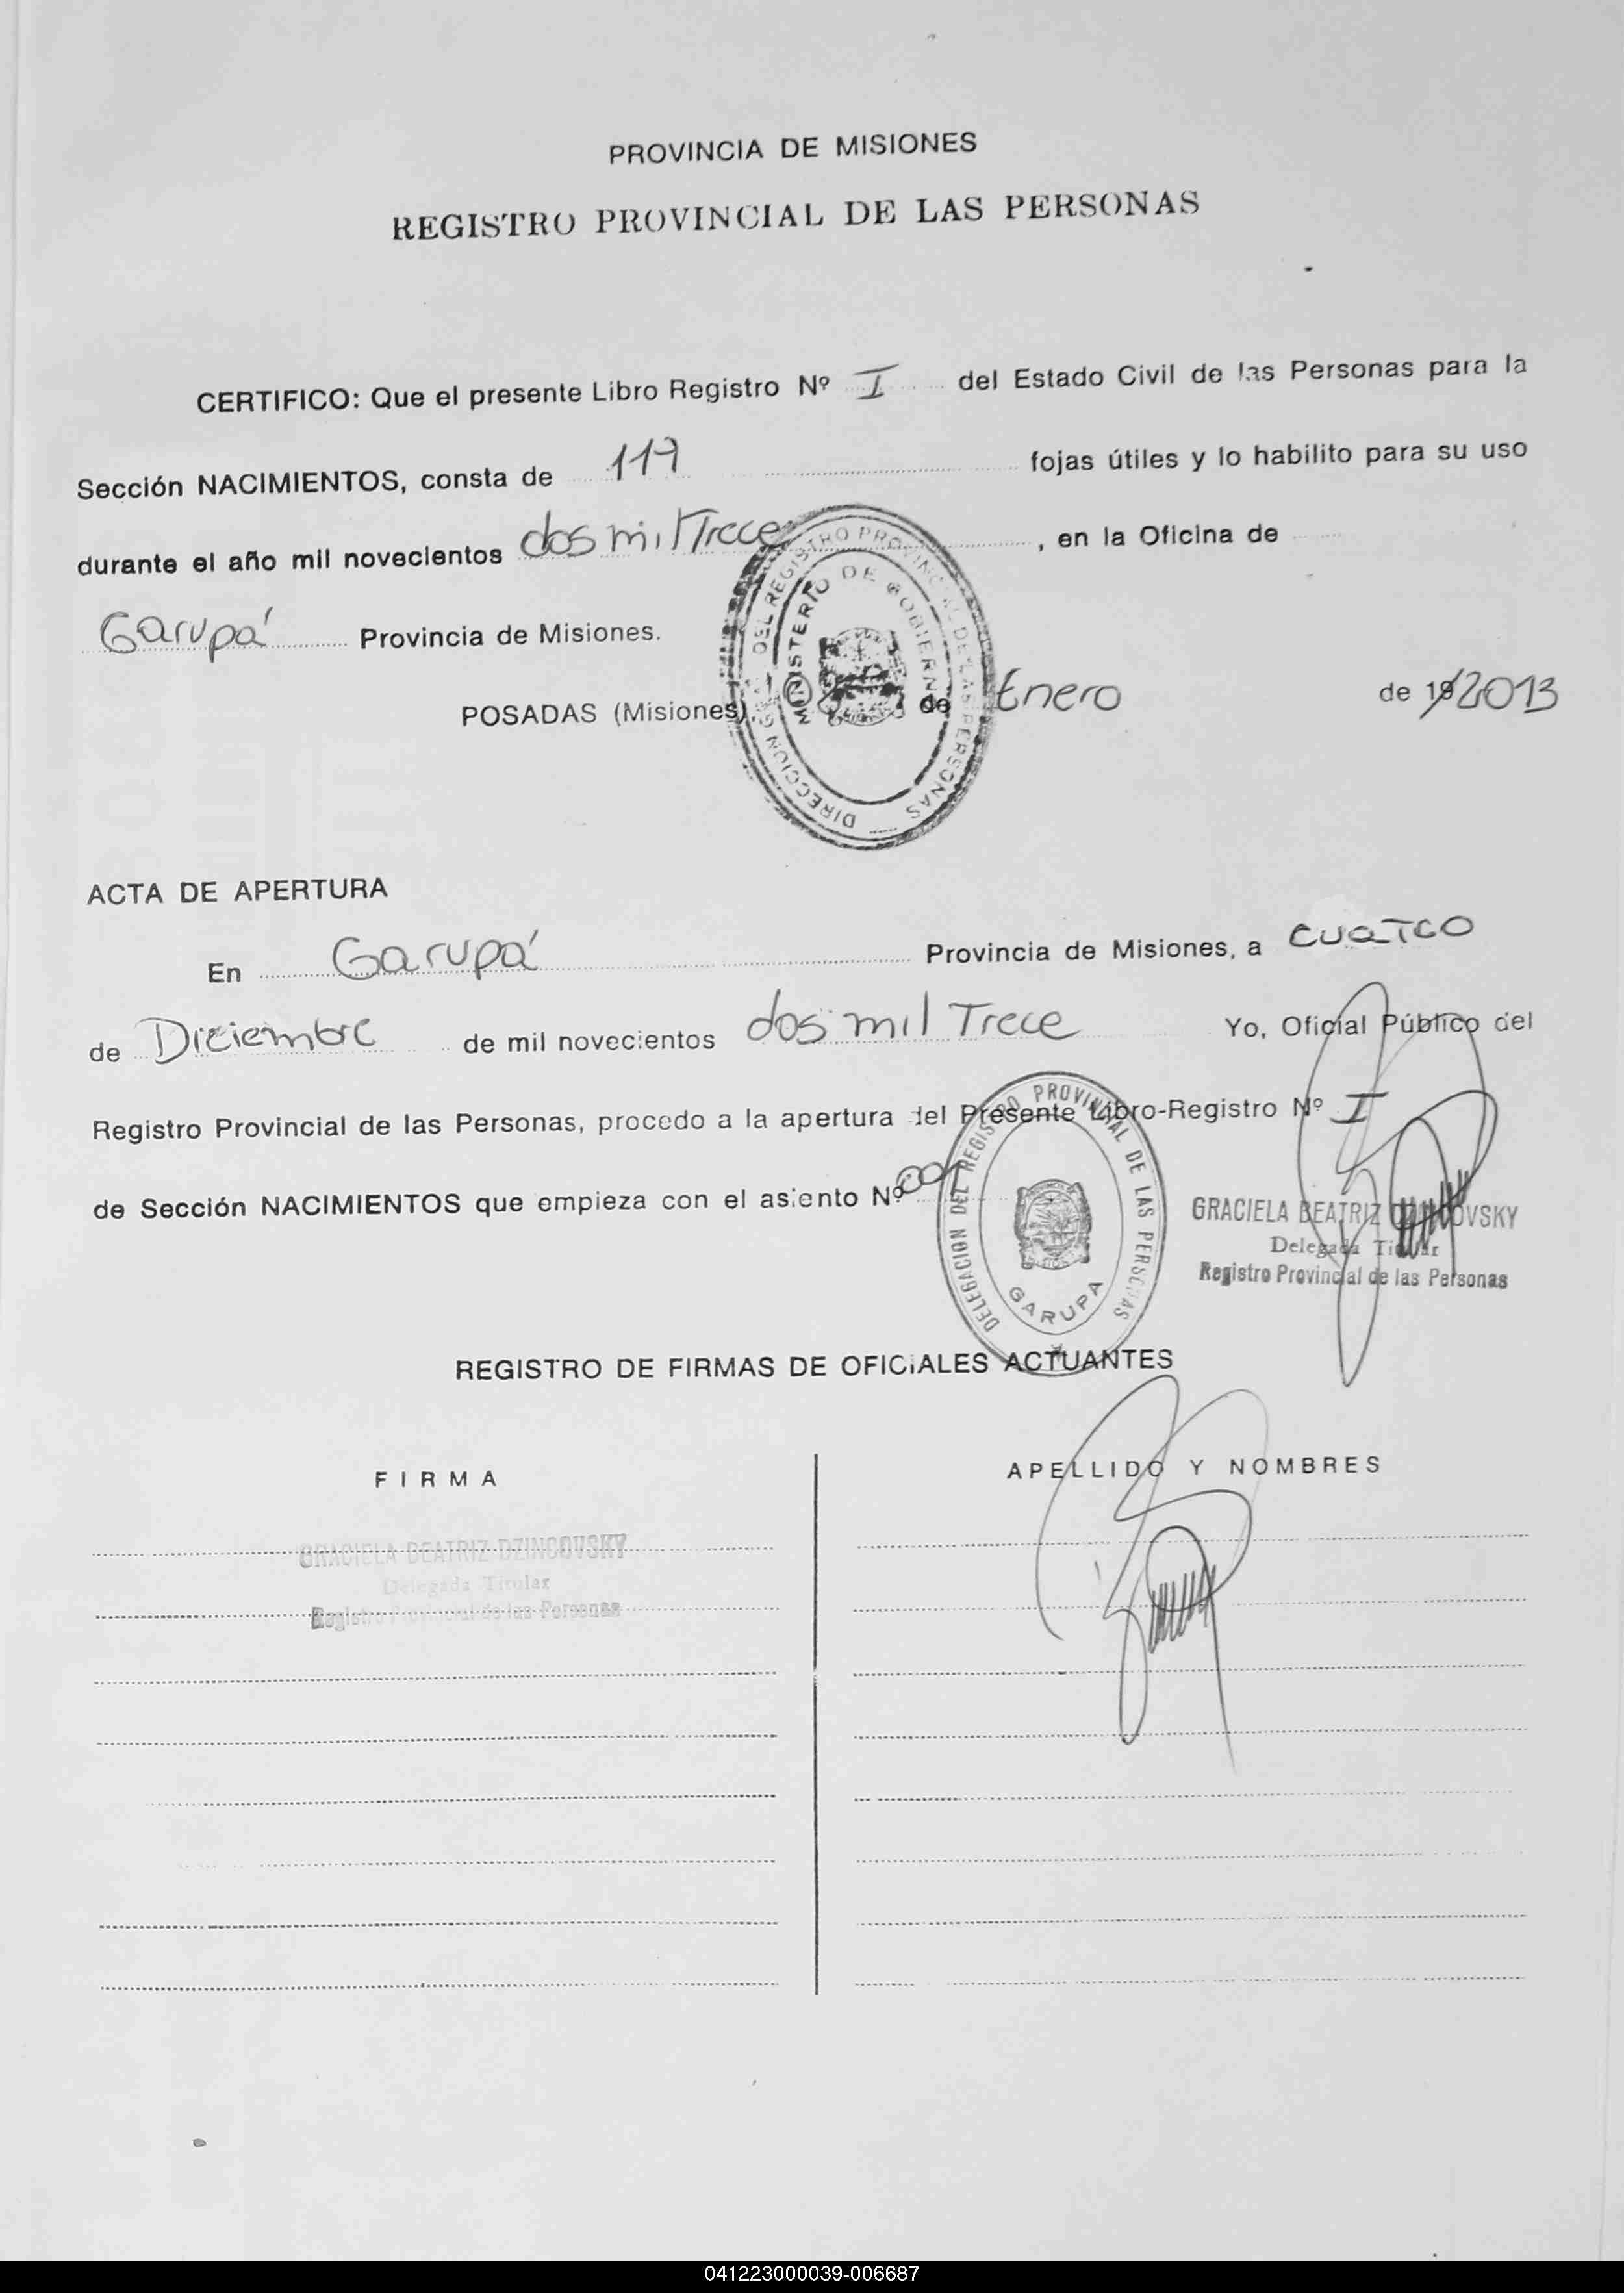 PROVINCIA DE MISIONES
REGISTRO PROVINCIAL DE LAS PERSONAS
CERTIFICO: Que el presente Libro Registro Nº I del Estado Civil de las Personas para la
Sección NACIMIENTOS, consta de 119 fojas útiles y lo habilito para su uso
durante el año mil novecientos dos mil Trece, en la Oficina de
Garupá Provincia de Misiones.
POSADAS (Misiones) de Enero de 19/2013
DIRECCION GRAL. DEL REGISTRO PROVINCIAL DE LAS PERSONAS
MINISTERIO DE GOBIERNO
ACTA DE APERTURA
En Garupá Provincia de Misiones, a cuatro
de Diciembre de mil novecientos dos mil Trece Yo, Oficial Público del
Registro Provincial de las Personas, procedo a la apertura del Presente Libro-Registro Nº I
de Sección NACIMIENTOS que empieza con el asiento Nº 001
DELEGACION DEL REGISTRO PROVINCIAL DE LAS PERSONAS
GARUPA
GRACIELA BEATRIZ DZINCOVSKY
Delegada Titular
Registro Provincial de las Personas
REGISTRO DE FIRMAS DE OFICIALES ACTUANTES
FIRMA APELLIDO Y NOMBRES
GRACIELA BEATRIZ DZINCOVSKY
Delegada Titular
Registro Provincial de las Personas
041223000039-006687